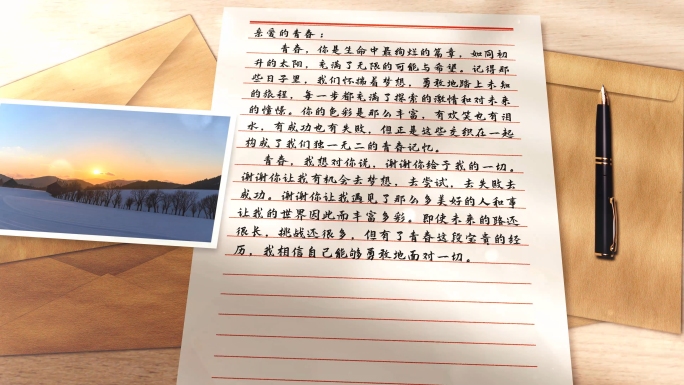 亲爱的青春：
青春，你是生命中最绚烂的篇章，如同初
升的太阳，充满了无限的可能与希望。记得那
些日子里，我们怀揣着梦想，勇敢地踏上未知
的旅程，每一步都充满了探索的激情和对未来
的憧憬。你的色彩是那么丰富，有欢笑也有泪
水，有成功也有失败，但正是这些交织在一起
构成了我们独一无二的青春记忆。
青春，我想对你说，谢谢你给予我的一切。
谢谢你让我有机会去梦想，去尝试，去失败去
成功。谢谢你让我遇见了那么多美好的人和事
让我的世界因此而丰富多彩。即使未来的路还
很长，挑战还很多，但有了青春这段宝贵的经
历，我相信自己能够勇敢地面对一切。